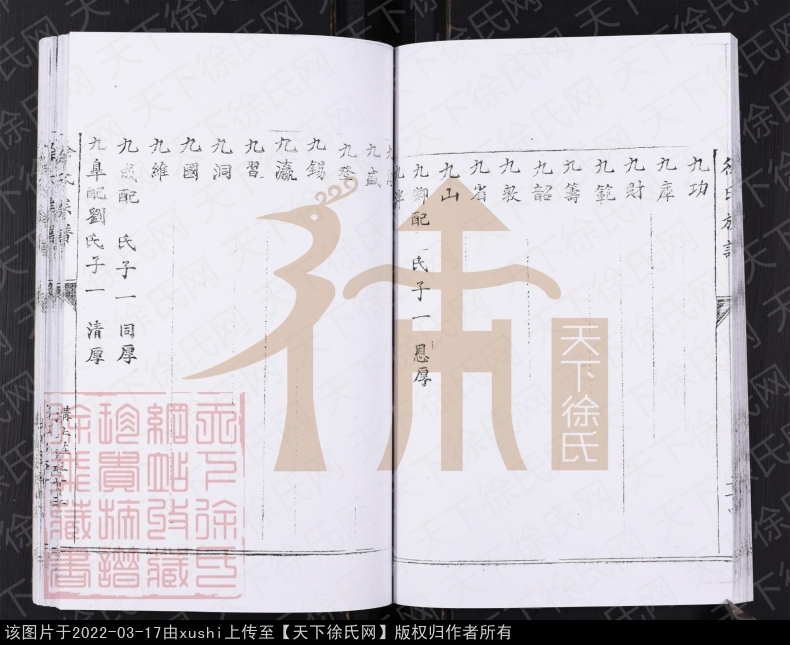 徐氏族譜
九功
九庠
九財
九範
九籌
九韶
九敦
九省
九山
九卿配 氏子一 恩厚
九盛
九登
九錫
九瀛
九習
九洞
九國
九維
九成配 氏子一 同厚
九皐配劉氏子一 清厚
天下徐氏
天下徐氏网
该图片于2022-03-17由xushi上传至【天下徐氏网】版权归作者所有